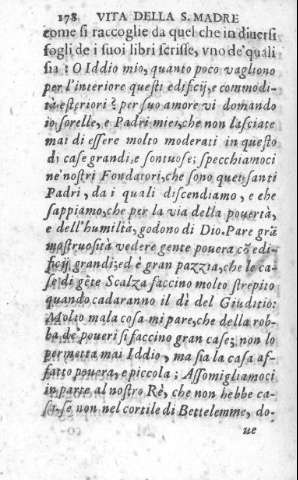 178 VITA DELLA S. MADRE
come si raccoglie da quel che in diuersi
fogli de i suoi libri scrisse, vno de' quali
sia: O Iddio mio, quanto poco vagliono
per l'interiore questi edificij, e commodi-
tà esteriori? per suo amore vi domando
io sorelle, e Padri miei, che non lasciate
mai di essere molto moderati in questo
di case grandi, e sontuose; specchiamoci
ne' nostri Fondatori, che sono quei santi
Padri, da i quali discendiamo, e che
sappiamo, che per la via della pouertà,
e dell'humiltà, godono di Dio. Pare grã
mostruosità vedere gente pouera cõ edi-
ficij grandi; ed è gran pazzia, che le ca-
se di gẽte Scalza faccino molto strepito
quando cadaranno il dì del Giuditio:
Molto mala cosa mi pare, che della rob-
ba de' poueri si faccino gran case; non lo
permetta mai Iddio, ma sia la casa af-
fatto pouera, e piccola; Assomigliamoci
in parte al nostro Rè, che non hebbe ca-
sa se non nel cortile di Bettelemme, do-
ue